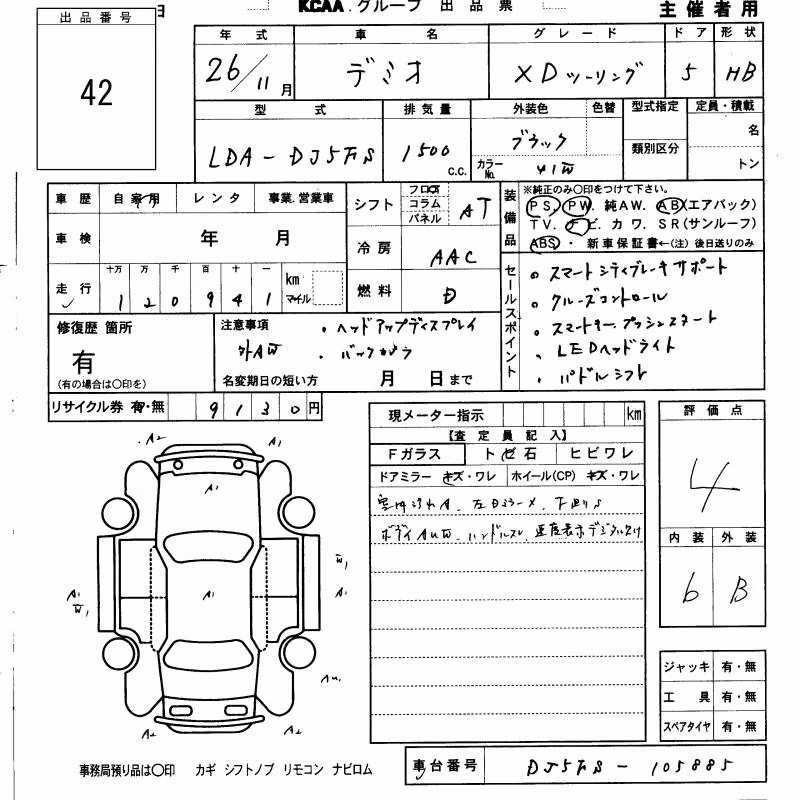 KCAA.グループ 出品票 主催者用
出品番号
42
年式 車名 グレード ドア 形状
26/11月 デミオ XDツーリング 5 HB
型式 排気量 外装色 色替 型式指定 定員・積載
LDA-DJ5FS 1500 C.C. ブラック 類別区分 名
カラーNo. 41W トン
車歴 自家用 レンタ 事業.営業車
車検 年 月
走行 十万 万 千 百 十 一
1 2 0 9 4 1 km マイル
シフト フロア コラム パネル AT
冷房 AAC
燃料 D
装備品
※純正のみ〇印をつけて下さい。
PS. PW. 純AW. AB(エアバック)
TV. ナビ. カワ. SR(サンルーフ)
ABS ・ 新車保証書←(注) 後日送りのみ
セールスポイント
・スマートシティブレーキサポート
・クルーズコントロール
・スマートキー.プッシュスタート
・LEDヘッドライト
・パドルシフト
修復歴 箇所
有
(有の場合は〇印を)
注意事項 ・ヘッドアップディスプレイ
外AW ・バックカメラ
名変期日の短い方 月 日まで
リサイクル券 有・無 9130円
現メーター指示 km
【査定員記入】
Fガラス トビ石 ヒビワレ
ドアミラー キズ・ワレ ホイール(CP) キズ・ワレ
ハンドルスレ 速度表示デジタル欠け
評価点
4
内装 外装
6 B
A2 A1
A1
W1
A1 A1 A1
W1
A2 A2
ジャッキ 有・無
工具 有・無
スペアタイヤ 有・無
事務局預り品は〇印 カギ シフトノブ リモコン ナビロム
車台番号 DJ5FS-105885